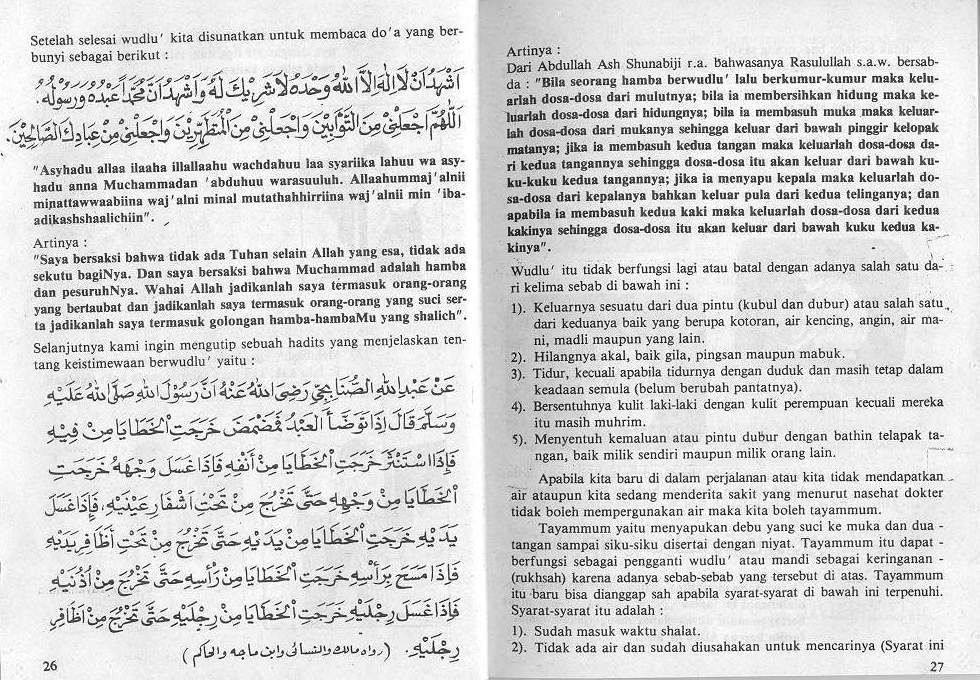 Setelah selesai wudlu' kita disunatkan untuk membaca do'a yang ber-
bunyi sebagai berikut :
اَشْهَدُ اَنْ لَا اِلٰهَ اِلَّا اللهُ وَحْدَهُ لَا شَرِيْكَ لَهُ وَاَشْهَدُ اَنَّ مُحَمَّدًا عَبْدُهُ وَرَسُوْلُهُ.
اَللّٰهُمَّ اجْعَلْنِيْ مِنَ التَّوَّابِيْنَ وَاجْعَلْنِيْ مِنَ الْمُتَطَهِّرِيْنَ وَاجْعَلْنِيْ مِنْ عِبَادِكَ الصَّالِحِيْنَ.
"Asyhadu allaa ilaaha illallaahu wachdahuu laa syariika lahuu wa asy-
hadu anna Muchammadan 'abduhuu warasuuluh. Allaahummaj'alnii
minattawwaabiina waj'alni minal mutathahhirriina waj'alnii min 'iba-
adikashshaalichiin".
Artinya :
"Saya bersaksi bahwa tidak ada Tuhan selain Allah yang esa, tidak ada
sekutu bagiNya. Dan saya bersaksi bahwa Muchammad adalah hamba
dan pesuruhNya. Wahai Allah jadikanlah saya termasuk orang-orang
yang bertaubat dan jadikanlah saya termasuk orang-orang yang suci ser-
ta jadikanlah saya termasuk golongan hamba-hambaMu yang shalich".
Selanjutnya kami ingin mengutip sebuah hadits yang menjelaskan ten-
tang keistimewaan berwudlu' yaitu :
عَنْ عَبْدِ اللهِ الصُّنَابِجِيِّ رَضِيَ اللهُ عَنْهُ اَنَّ رَسُوْلَ اللهِ صَلَّى اللهُ عَلَيْهِ
وَسَلَّمَ قَالَ اِذَا تَوَضَّأَ الْعَبْدُ فَمَضْمَضَ خَرَجَتِ الْخَطَايَا مِنْ فِيْهِ
فَاِذَا اسْتَنْثَرَ خَرَجَتِ الْخَطَايَا مِنْ اَنْفِهِ فَاِذَا غَسَلَ وَجْهَهُ خَرَجَتِ
الْخَطَايَا مِنْ وَجْهِهِ حَتَّى تَخْرُجَ مِنْ تَحْتِ اَشْفَارِ عَيْنَيْهِ، فَاِذَا غَسَلَ
يَدَيْهِ خَرَجَتِ الْخَطَايَا مِنْ يَدَيْهِ حَتَّى تَخْرُجَ مِنْ تَحْتِ اَظَافِرِ يَدَيْهِ
فَاِذَا مَسَحَ بِرَأْسِهِ خَرَجَتِ الْخَطَايَا مِنْ رَأْسِهِ حَتَّى تَخْرُجَ مِنْ اُذُنَيْهِ
فَاِذَا غَسَلَ رِجْلَيْهِ خَرَجَتِ الْخَطَايَا مِنْ رِجْلَيْهِ حَتَّى تَخْرُجَ مِنْ اَظَافِرِ
رِجْلَيْهِ. (رواه مالك والنسائى وابن ماجه والحاكم)
26
Artinya :
Dari Abdullah Ash Shunabiji r.a. bahwasanya Rasulullah s.a.w. bersab-
da : "Bila seorang hamba berwudlu' lalu berkumur-kumur maka kelu-
arlah dosa-dosa dari mulutnya; bila ia membersihkan hidung maka ke-
luarlah dosa-dosa dari hidungnya; bila ia membasuh muka maka keluar-
lah dosa-dosa dari mukanya sehingga keluar dari bawah pinggir kelopak
matanya; jika ia membasuh kedua tangan maka keluarlah dosa-dosa da-
ri kedua tangannya sehingga dosa-dosa itu akan keluar dari bawah ku-
ku-kuku kedua tangannya; jika ia menyapu kepala maka keluarlah do-
sa-dosa dari kepalanya bahkan keluar pula dari kedua telinganya; dan
apabila ia membasuh kedua kaki maka keluarlah dosa-dosa dari kedua
kakinya sehingga dosa-dosa itu akan keluar dari bawah kuku kedua ka-
kinya".
Wudlu' itu tidak berfungsi lagi atau batal dengan adanya salah satu da-
ri kelima sebab di bawah ini :
1). Keluarnya sesuatu dari dua pintu (kubul dan dubur) atau salah satu
dari keduanya baik yang berupa kotoran, air kencing, angin, air ma-
ni, madli maupun yang lain.
2). Hilangnya akal, baik gila, pingsan maupun mabuk.
3). Tidur, kecuali apabila tidurnya dengan duduk dan masih tetap dalam
keadaan semula (belum berubah pantatnya).
4). Bersentuhnya kulit laki-laki dengan kulit perempuan kecuali mereka
itu masih muhrim.
5). Menyentuh kemaluan atau pintu dubur dengan bathin telapak ta-
ngan, baik milik sendiri maupun milik orang lain.
Apabila kita baru di dalam perjalanan atau kita tidak mendapatkan
air ataupun kita sedang menderita sakit yang menurut nasehat dokter
tidak boleh mempergunakan air maka kita boleh tayammum.
Tayammum yaitu menyapukan debu yang suci ke muka dan dua -
tangan sampai siku-siku disertai dengan niyat. Tayammum itu dapat -
berfungsi sebagai pengganti wudlu' atau mandi sebagai keringanan -
(rukhsah) karena adanya sebab-sebab yang tersebut di atas. Tayammum
itu baru bisa dianggap sah apabila syarat-syarat di bawah ini terpenuhi.
Syarat-syarat itu adalah :
1). Sudah masuk waktu shalat.
2). Tidak ada air dan sudah diusahakan untuk mencarinya (Syarat ini
27